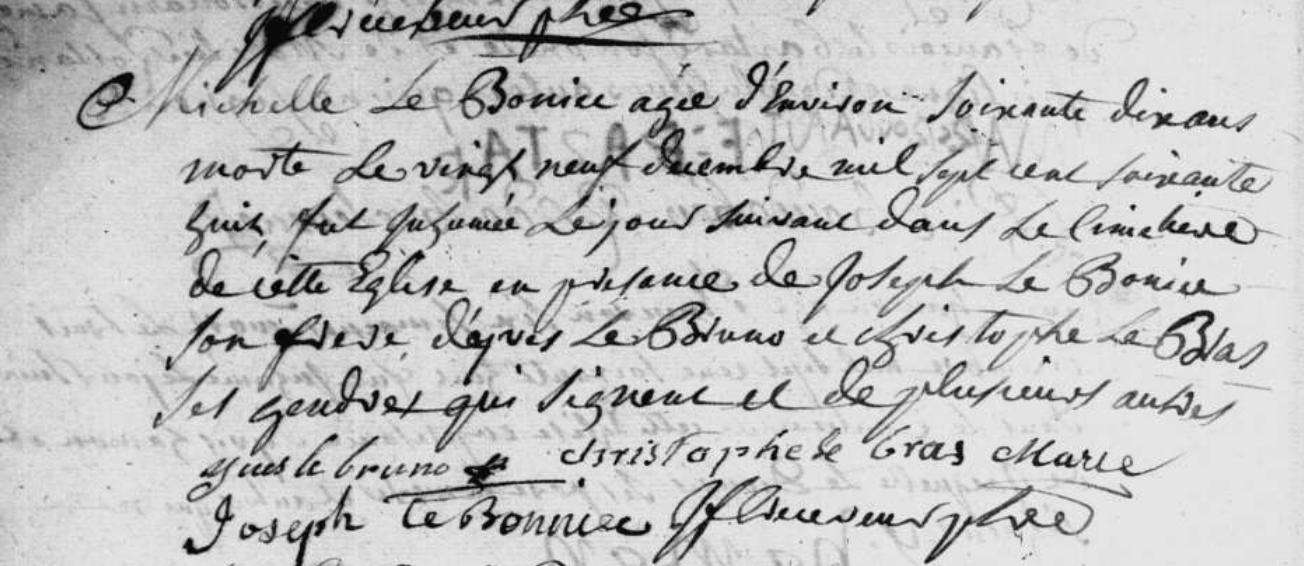 Michelle Le Bonice agée d'Environ soixante dix ans
morte Le vingt neuf decembre mil sept cent soixante
huit, fut Inhumée Le jour suivant dans Le Cimetière
de cette Eglise en presance de Joseph Le Bonice
son frere, d'yves Le Bruno et christophe Le Bras
ses gendres qui signent et de plusieurs autres
yves le bruno christophe le bras Marec
Joseph Le Bonniec